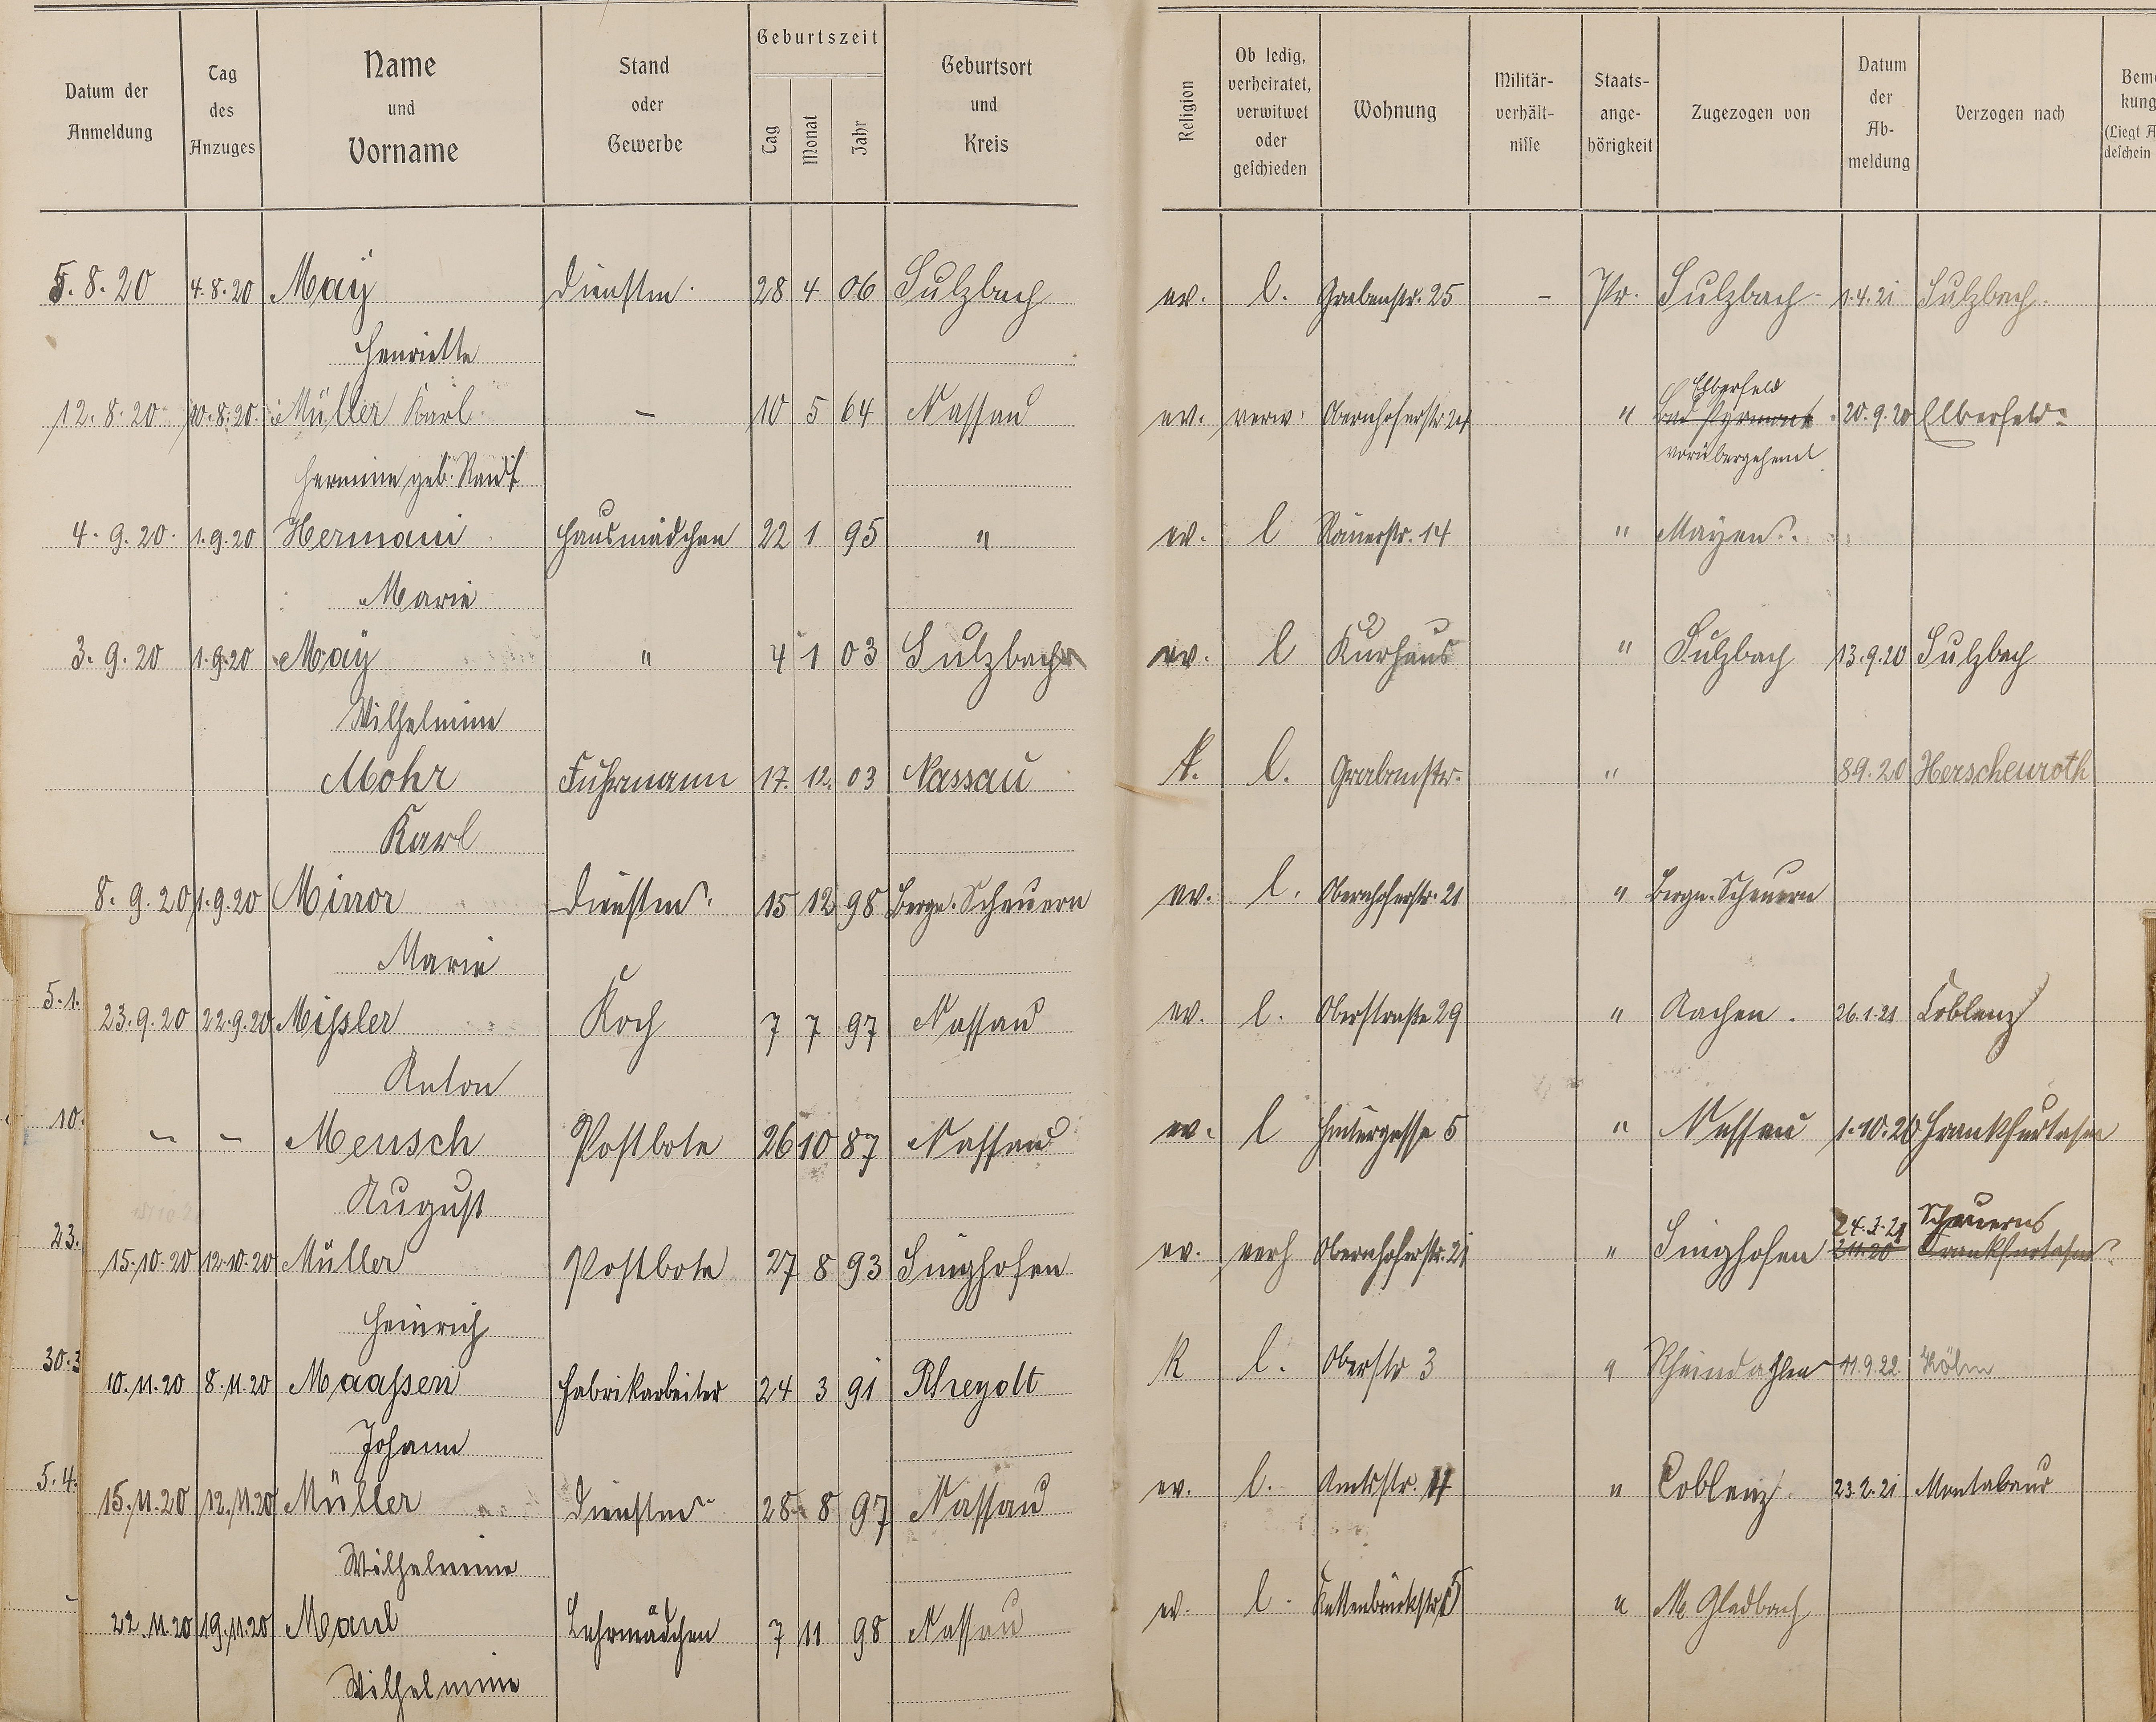 Datum der Anmeldung | Tag des Anzuges | Name und Vorname | Stand oder Gewerbe | Geburtszeit Tag Monat Jahr | Geburtsort und Kreis | Religion | Ob ledig, verheiratet, verwitwet oder geschieden | Wohnung | Militär-verhält-nisse | Staats-ange-hörigkeit | Zugezogen von | Datum der Ab-meldung | Verzogen nach
5.8.20 4.8.20 May Dienstm. 28 4 06 Sulzbach ev. l. Grabenstr. 25 - Pr. Sulzbach 1.4.21 Sulzbach.
Henriette
Elberfeld
12.8.20 10.8.20. Müller Karl. - 10 5 64 Nassau ev. verw. Obernhoferstr. " Bad Pyrmont 20.9.20 Elberfeld
vorübergehend
Hermine geb.
4.9.20. 1.9.20 Hermani Hausmädchen 22 1 95 " ev. l 14 " Mayen.
Marie
3.9.20 1.9.20 May " 4 1 03 Sulzbach ev. l Kurhaus " Sulzbach 13.9.20 Sulzbach
Wilhelmine
Mohr Fuhrmann 17. 12. 03 Nassau K. l. Grabenstr. " 8 9.20 Herschenroth
Karl
8.9.20 1.9.20 Minor Dienstm. 15 12 98 Bergn. Scheuern ev. l. Obernhoferstr. 21 " Bergn. Scheuern
Marie
5.1.
23.9.20 22.9.20 Mißler Koch 7 7 97 Nassau ev. l. Oberstraße 29 " Aachen. 26.1.21 Coblenz
Anton
10.
- - Mensch Postbote 26 10 87 Nassau ev. l Hintergasse 5 " Nassau 1.10.20 Frankfurt
August
24.3.21 Scheuern
23.
15.10.20 12.10.20 Müller Postbote 27 8 93 Singhofen ev. verh Obernhoferstr. 21 " Singhofen Frankfurt
Heinrich
30.3
10.11.20 8.11.20 Maaßen Fabrikarbeiter 24 3 91 Rheydt K l. Oberstr 3 " Rheindahlen 11.9.22. Köln
Johann
5.4.
15.11.20 12.11.20 Müller Dienstm. 28 8 97 Nassau ev. l. Amtsstr. " Coblenz. 23.2.21 Montabaur
Wilhelmine
22.11.20 19.11.20 Maul Lehrmädchen 7 11 98 Nassau ev. l. Kettenbrückstr " M Gladbach
Wilhelmine